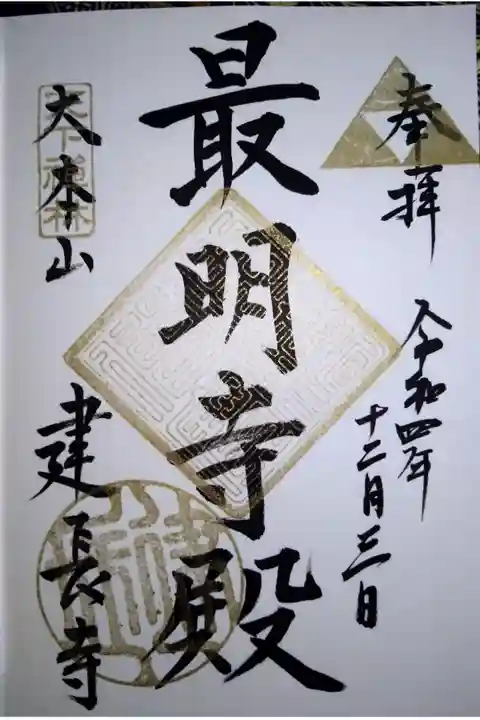 奉拝
令和四年
十二月三日
最明寺殿
天下禅林
大本山
建長寺